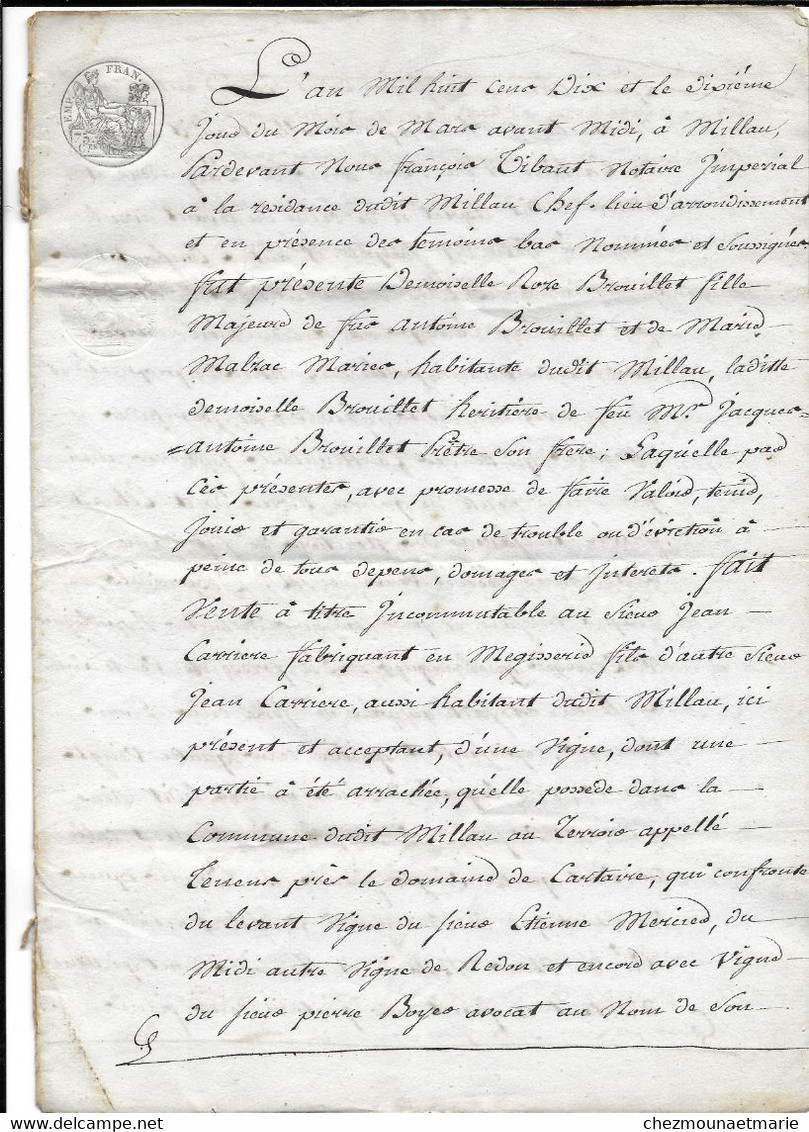 EMP. FRAN.
L'an Mil huit cens Dix et le dixiéme
jour du Mois de Mars avant Midi, à Millau,
Pardevant Nous françois Tibaut Notaire Imperial
à la residance dudit Millau Chef-lieu d'arrondissement
et en présence des temoins bas Nommés et soussignés
fut présente Demoiselle Roze Brouillet fille
Majeure de feu antoine Brouillet et de Marie
Malzac Mariés, habitante dudit Millau, laditte
demoiselle Brouillet heritière de feu Mr. Jacques=
=antoine Brouillet Prêtre son frere; Laquelle par
ces présentes, avec promesse de faire Valoir, tenir,
jouir et garantir en cas de trouble ou d'éviction à
peine de tous depens, domages et interets. fait
Vente à titre Incommutable au sieur Jean
Carriere fabriquant en Megisserie fils d'autre sieur
jean Carriere, aussi habitant dudit Millau, ici
présent et acceptant, d'une Vigne, dont une
partie à été arrachée, qu'elle possede dans la
Commune dudit Millau au Terroir appellé
Tenens près le domaine de Cartaire, qui confronte
du levant Vigne du sieur Etienne Mercier, du
Midi autre Vigne de Redon et encore avec Vigne
du sieur pierre Boyer avocat au Nom de son
chezmounaetmarie